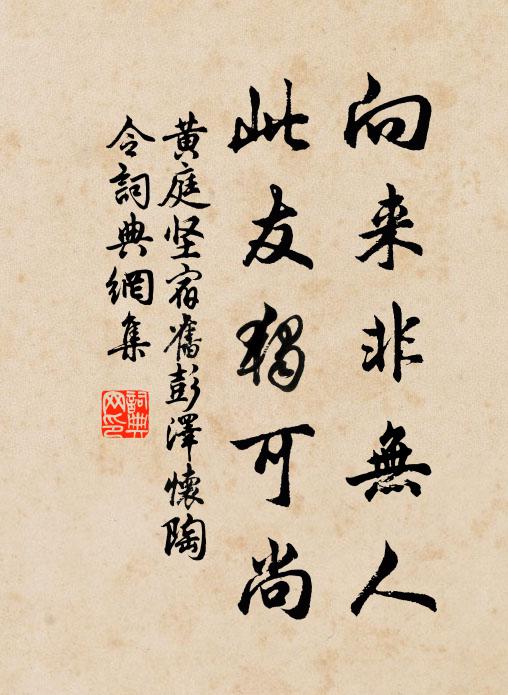 向来非無人
此友獨可尚
黄庭坚宿舊彭澤懷陶
令詞典網集
詞典
网印